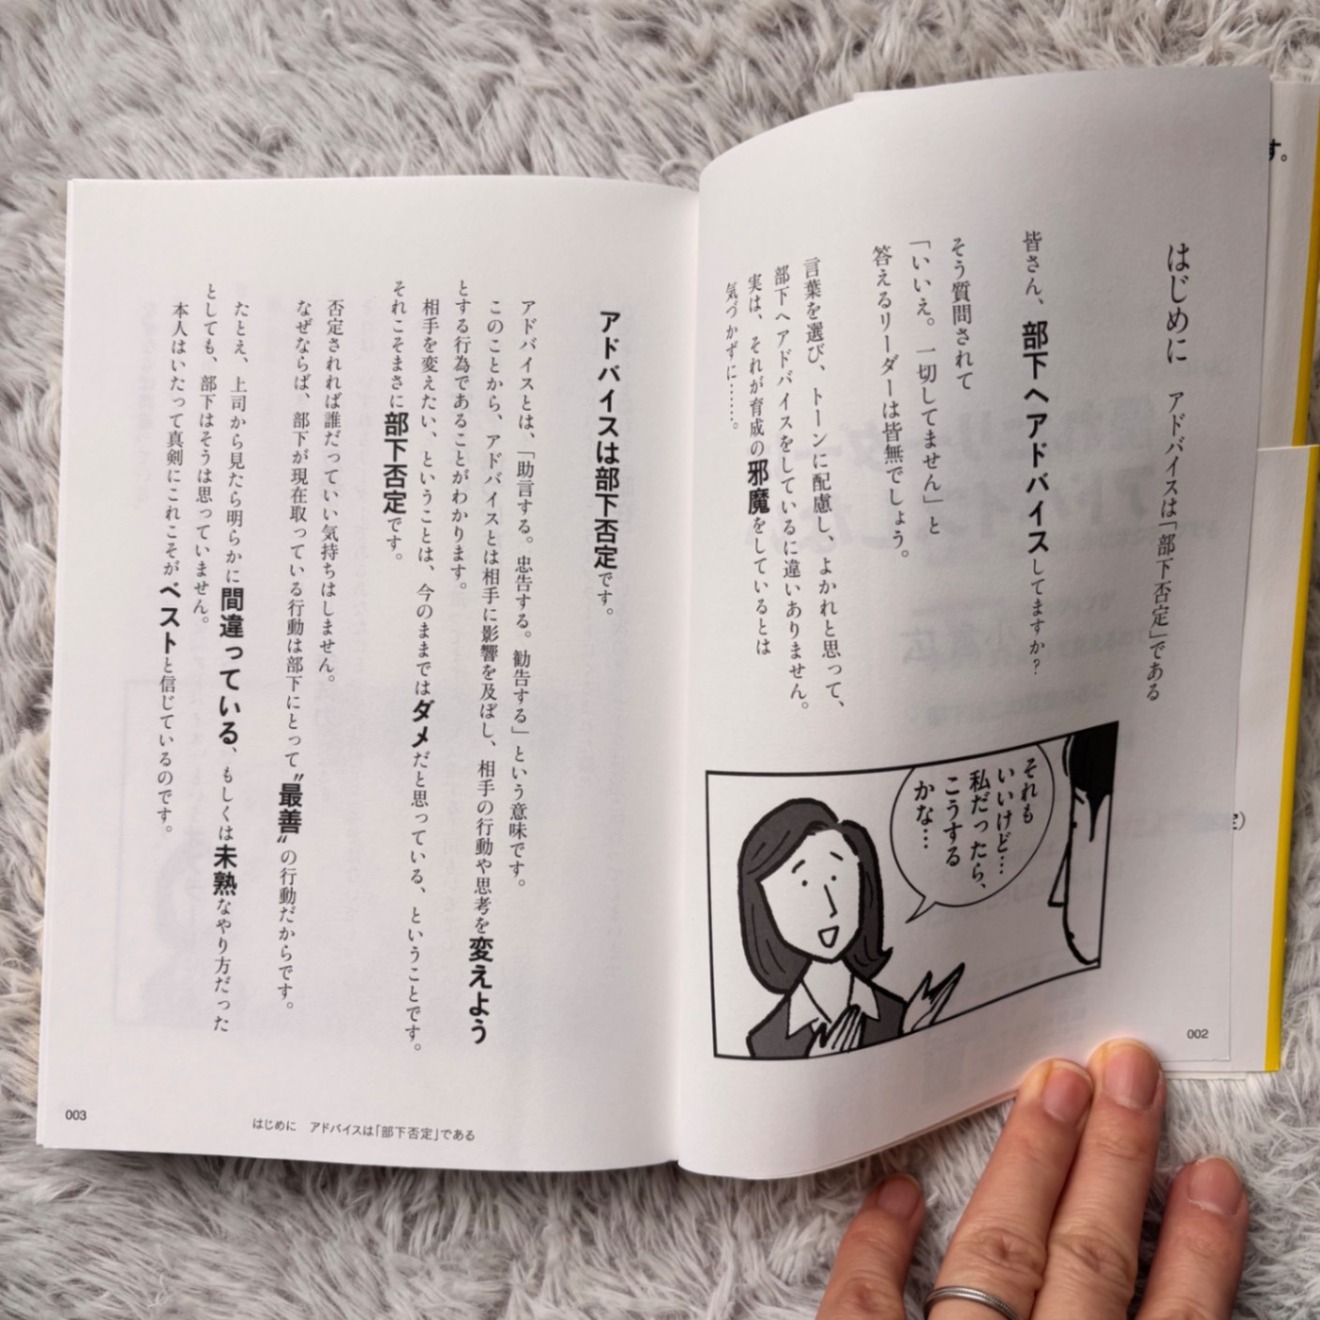 はじめに　アドバイスは「部下否定」である
皆さん、部下へアドバイスしてますか？
そう質問されて
「いいえ。一切してません」と
答えるリーダーは皆無でしょう。
言葉を選び、トーンに配慮し、よかれと思って、
部下へアドバイスをしているに違いありません。
実は、それが育成の邪魔をしているとは
気づかずに……。
それも
いいけど…
私だったら、
こうする
かな…
002
アドバイスは部下否定です。
アドバイスとは、「助言する。忠告する。勧告する」という意味です。
このことから、アドバイスとは相手に影響を及ぼし、相手の行動や思考を変えよう
とする行為であることがわかります。
相手を変えたい、ということは、今のままではダメだと思っている、ということです。
それこそまさに部下否定です。
否定されれば誰だっていい気持ちはしません。
なぜならば、部下が現在取っている行動は部下にとって〝最善〟の行動だからです。
たとえ、上司から見たら明らかに間違っている、もしくは未熟なやり方だった
としても、部下はそうは思っていません。
本人はいたって真剣にこれこそがベストと信じているのです。
003
はじめに　アドバイスは「部下否定」である
す。